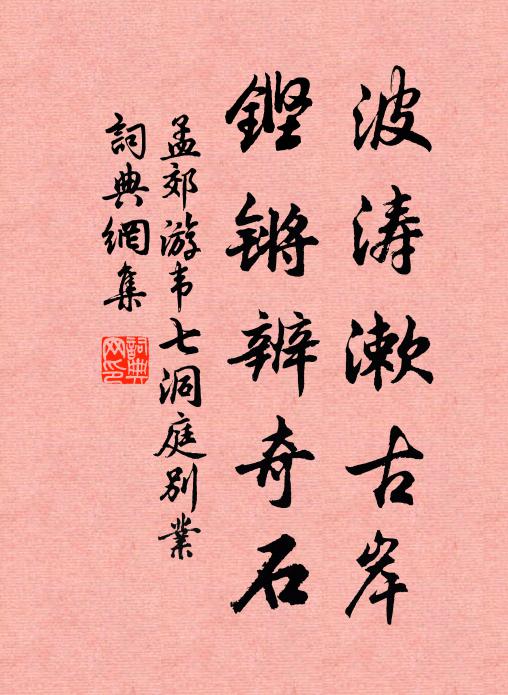 波涛漱古岸
鏗锵辨奇石
孟郊游韦七洞庭別業
詞典網集
詞典網印